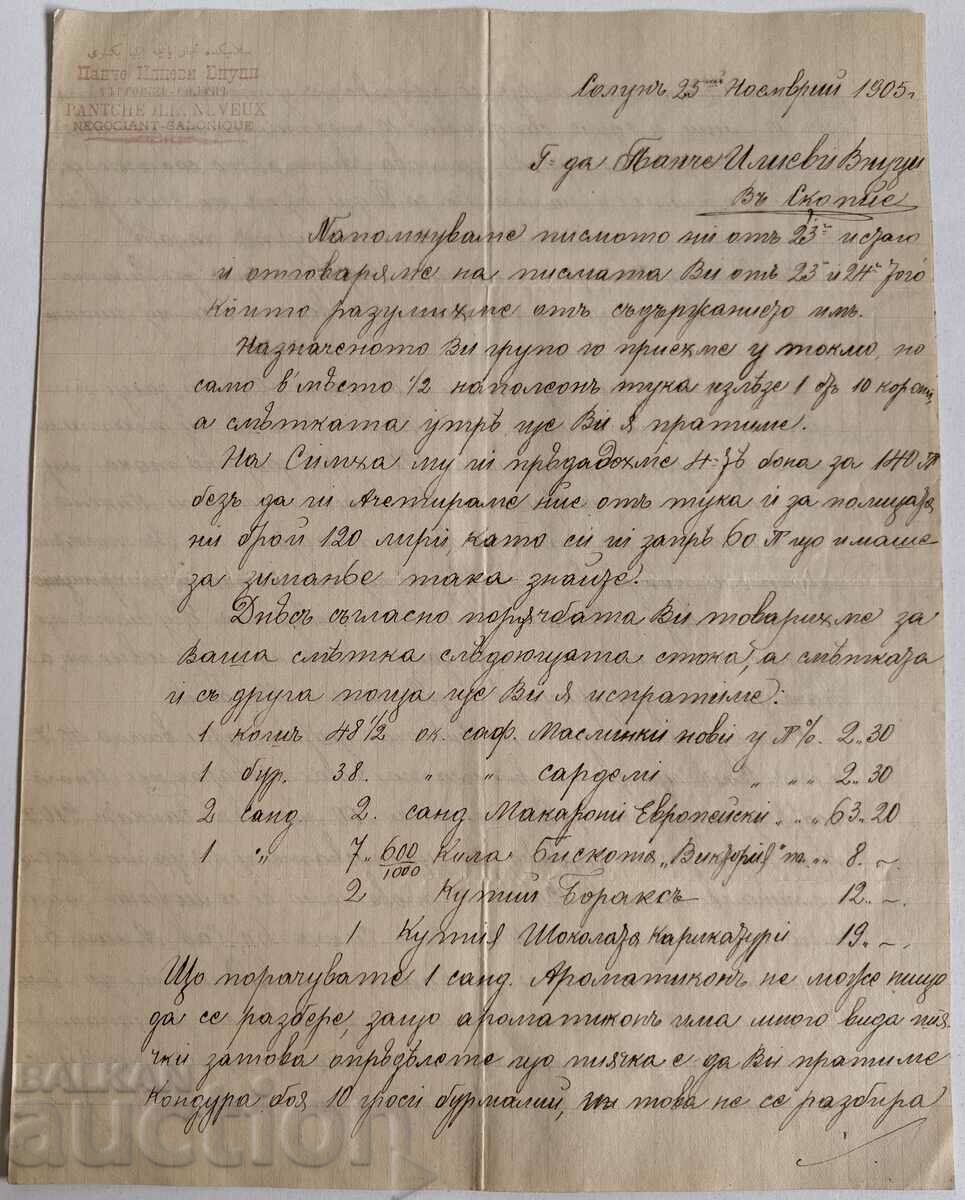 Панче Илиеви Внуци
PANTCHE ILIEV NEVEUX
NEGOCIANT-SALONIQUE
Солунъ 25 Ноемврий 1905 г.
Г-да Панче Илиеви Внуци
Въ Скопие
Напомнуваме писмото ни отъ 23-и истаго
и отговаряме на писмата Ви отъ 23-и и 24-и того
които разумихме отъ съдържанието имъ.
Назначеното Ви групо го приехме у токмо, но
само в'место 1/2 наполеонъ тука излезе 1 отъ 10 корони,
а сметката утре ще Ви я пратиме.
На Симха му ги предадохме 4-те бона за 140 Л
безъ да ги Ачетираме ние отъ тука и за полицата
ни брои 120 лири, като си ги запре 60 Л що имаше
за зиманье така знайте.
Днесъ съгласно порячбата Ви товарихме за
Ваша сметка следующата стока, а сметката
и съ друга поща ще Ви я испратиме:
1 кошъ 48 1/2 ок. саф. Маслинки нови у Л %. 2.,30
1 бур. 38. „ „ сардели „ „ „ 2.,30
2 санд. 2. санд Макарони Европейски „ „ „ 63.,20
1 „ 7.. 600/1000 Кила Бискота „Виктория" „ „ 8. ~.
2 Кутии Бораксъ 12.. ~.
1 Кутия Шоколата карикатури 19.. ~.
Що порачувате 1 санд. Ароматиконъ не може нищо
да се разбере, защо ароматиконъ има много вида пия-
чки затова определете що пиячка е да Ви пратиме
Кондура боя 10 гроси бурмалии, и това не се разбира
BALKAN
auction